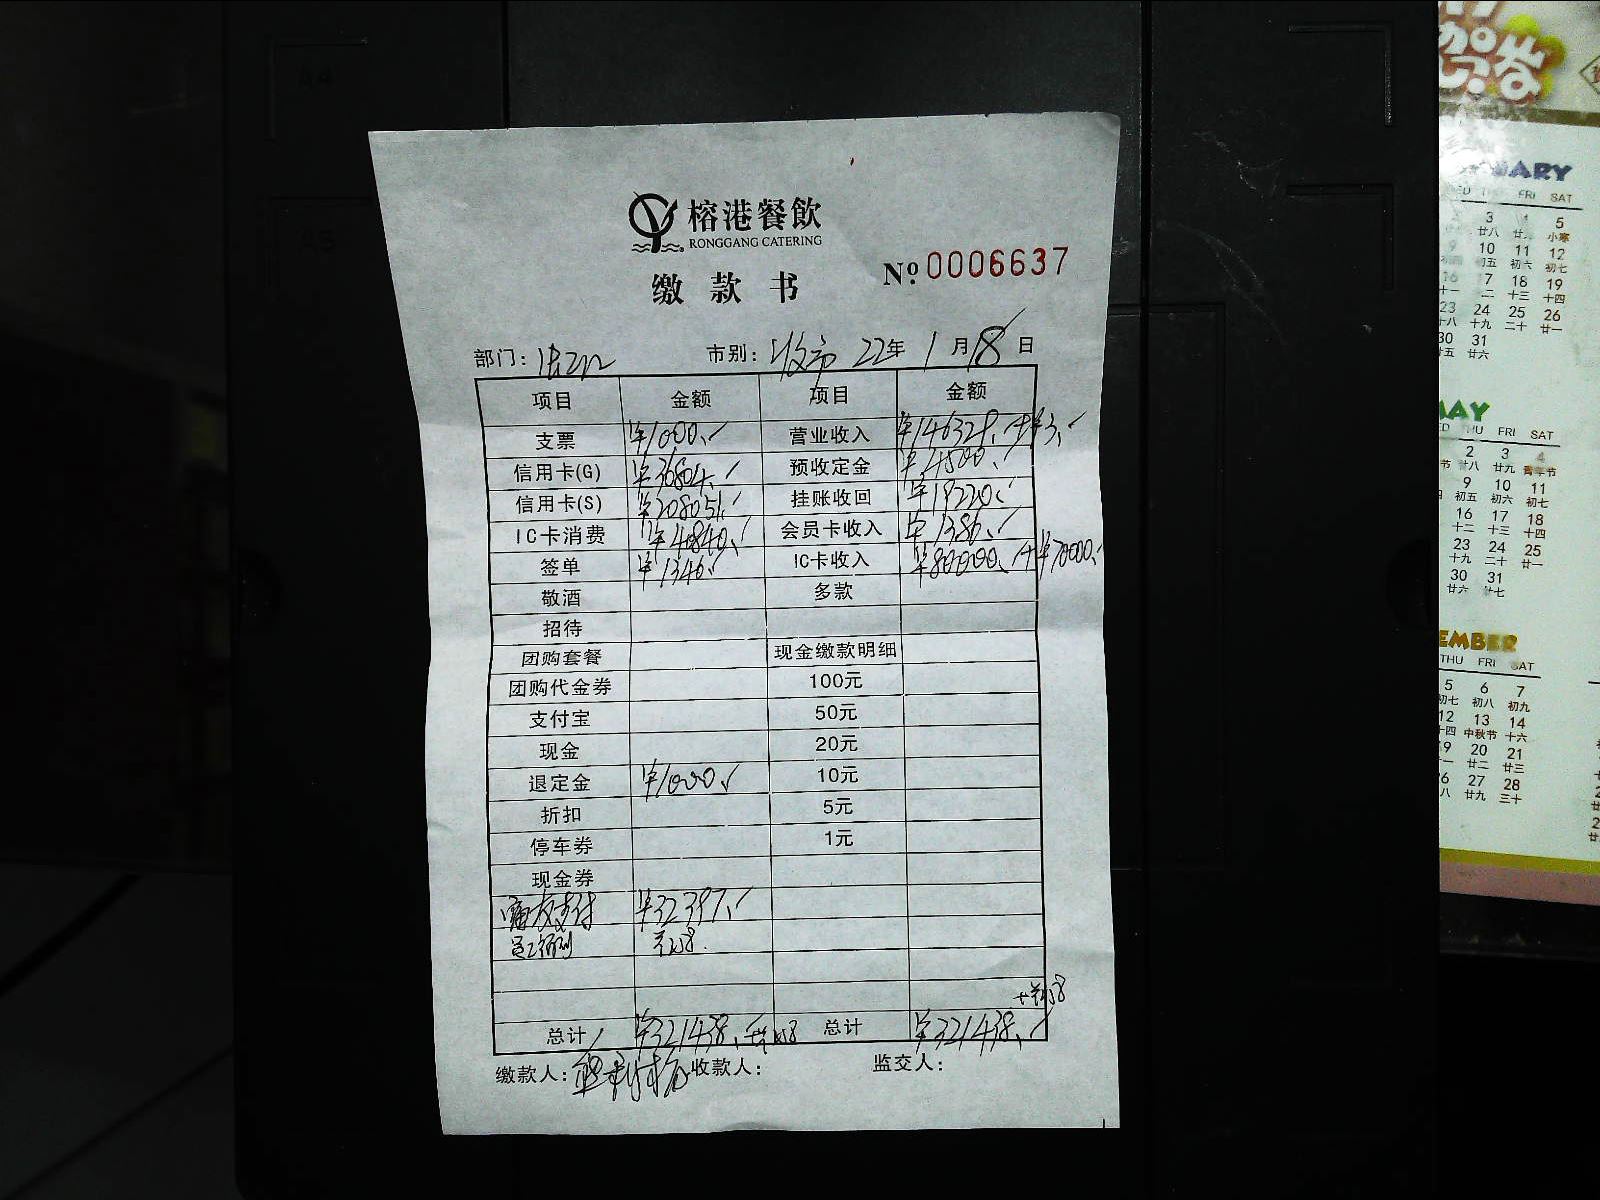 榕港餐飲
RONGGANG CATERING
缴款书 No. 0006637
部门: 市别: 收市 22年 1月18日
项目 金额 项目 金额
支票 ¥1000. 营业收入 ¥146329.
信用卡(G) ¥36804. 预收定金 ¥4500.
信用卡(S) ¥208051. 挂账收回 ¥19220.
IC卡消费 ¥40840. 会员卡收入 ¥1386.
签单 ¥1346. IC卡收入 ¥80000.+¥70000.
敬酒 多款
招待
团购套餐 现金缴款明细
团购代金券 100元
支付宝 50元
现金 20元
退定金 ¥1000. 10元
折扣 5元
停车券 1元
现金券
支付 ¥32397.
员工
总计 ¥321438. 总计 ¥321438.
缴款人: 收款人: 监交人:
贺岁
UARY
FRI SAT
3 4 5
廿八 小寒
10 11 12
初五 初六 初七
18 19
十三 十四
23 24 25 26
十八 十九 二十 廿一
30 31
廿五 廿六
MAY
THU FRI SAT
2 3 4
廿八 廿九 青年节
9 10 11
初五 初六 初七
16 17 18
十二 十三 十四
23 24 25
十九 二十 廿一
30 31
廿六 廿七
EMBER
THU FRI SAT
5 6 7
初七 初八 初九
12 13 14
十四 中秋节 十六
19 20 21
廿二 廿三
26 27 28
廿九 三十